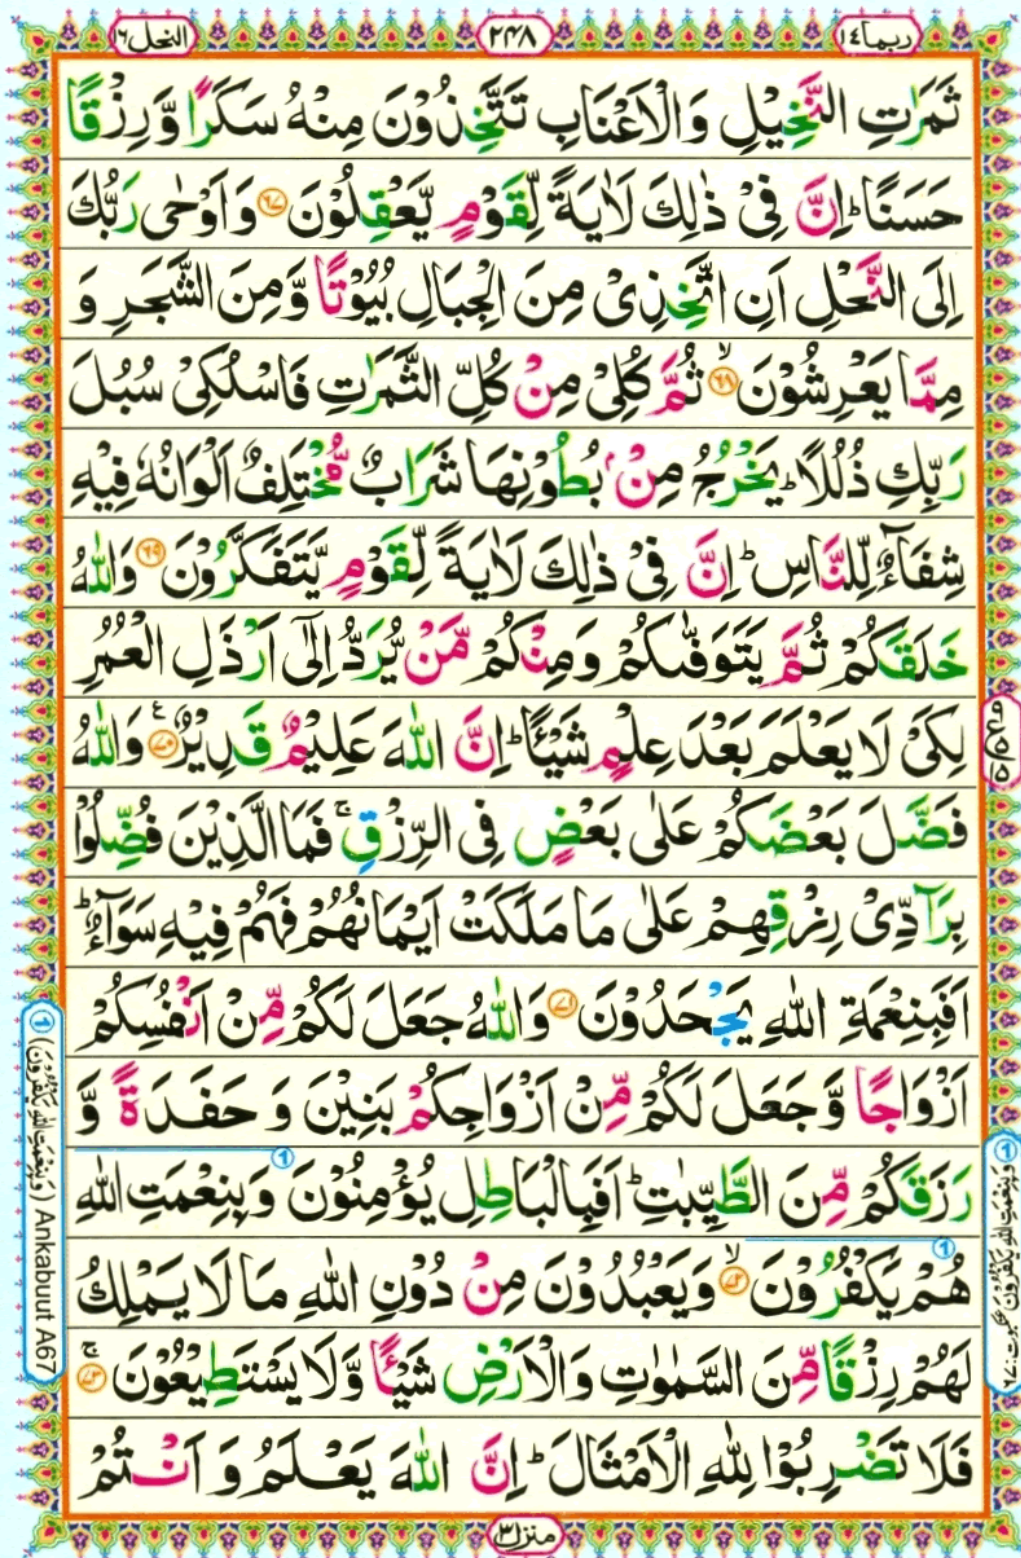 ربما ١٤
٢٤٨
النحل ١٦
ثَمَرٰتِ النَّخِيْلِ وَالْاَعْنَابِ تَتَّخِذُوْنَ مِنْهُ سَكَرًا وَّ رِزْقًا
حَسَنًا ؕ اِنَّ فِیْ ذٰلِكَ لَاٰيَةً لِّقَوْمٍ يَّعْقِلُوْنَ ﴿٦٧﴾ وَاَوْحٰی رَبُّكَ
اِلَی النَّحْلِ اَنِ اتَّخِذِیْ مِنَ الْجِبَالِ بُيُوْتًا وَّمِنَ الشَّجَرِ وَ
مِمَّا يَعْرِشُوْنَ ۙ﴿٦٨﴾ ثُمَّ كُلِیْ مِنْ كُلِّ الثَّمَرٰتِ فَاسْلُكِیْ سُبُلَ
رَبِّكِ ذُلُلًا ؕ يَخْرُجُ مِنْۢ بُطُوْنِهَا شَرَابٌ مُّخْتَلِفٌ اَلْوَانُهٗ فِيْهِ
شِفَآءٌ لِّلنَّاسِ ؕ اِنَّ فِیْ ذٰلِكَ لَاٰيَةً لِّقَوْمٍ يَّتَفَكَّرُوْنَ ﴿٦٩﴾ وَاللّٰهُ
خَلَقَكُمْ ثُمَّ يَتَوَفّٰىكُمْ وَمِنْكُمْ مَّنْ يُّرَدُّ اِلٰٓی اَرْذَلِ الْعُمُرِ
لِكَیْ لَا يَعْلَمَ بَعْدَ عِلْمٍ شَيْـًٔا ؕ اِنَّ اللّٰهَ عَلِيْمٌ قَدِيْرٌ ﴿٧٠﴾ ع وَاللّٰهُ
فَضَّلَ بَعْضَكُمْ عَلٰی بَعْضٍ فِی الرِّزْقِ ۚ فَمَا الَّذِيْنَ فُضِّلُوْا
بِرَآدِّیْ رِزْقِهِمْ عَلٰی مَا مَلَكَتْ اَيْمَانُهُمْ فَهُمْ فِيْهِ سَوَآءٌ ؕ
اَفَبِنِعْمَةِ اللّٰهِ يَجْحَدُوْنَ ﴿٧١﴾ وَاللّٰهُ جَعَلَ لَكُمْ مِّنْ اَنْفُسِكُمْ
اَزْوَاجًا وَّ جَعَلَ لَكُمْ مِّنْ اَزْوَاجِكُمْ بَنِيْنَ وَ حَفَدَةً وَّ
رَزَقَكُمْ مِّنَ الطَّيِّبٰتِ ؕ اَفَبِالْبَاطِلِ يُؤْمِنُوْنَ ① وَبِنِعْمَتِ اللّٰهِ
هُمْ يَكْفُرُوْنَ ① ۙ﴿٧٢﴾ وَيَعْبُدُوْنَ مِنْ دُوْنِ اللّٰهِ مَا لَا يَمْلِكُ
لَهُمْ رِزْقًا مِّنَ السَّمٰوٰتِ وَالْاَرْضِ شَيْـًٔا وَّلَا يَسْتَطِيْعُوْنَ ۚ﴿٧٣﴾
فَلَا تَضْرِبُوْا لِلّٰهِ الْاَمْثَالَ ؕ اِنَّ اللّٰهَ يَعْلَمُ وَ اَنْتُمْ
منزل ٣
① (وَبِنِعْمَةِ اللّٰهِ يَكْفُرُوْنَ) Ankabuut A67
① وَبِنِعْمَةِ اللّٰهِ يَكْفُرُوْنَ